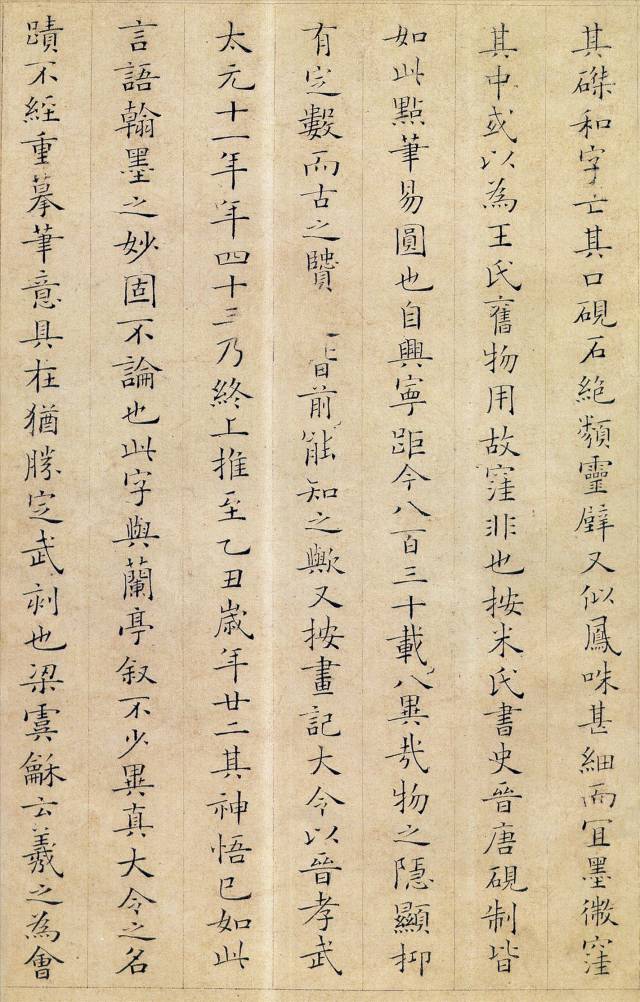 其磔和字亡其口硯石絕類靈璧又似鳳咮甚細而宜墨微窪
其中或以為王氏舊物用故窪非也按米氏書史晉唐硯制皆
如此點筆易圓也自興寧距今八百三十載八異哉物之隱顯抑
有定數而古之前能知之歟又按畫記大令以晉孝武
太元十一年年四十三乃終上推至乙丑歲年廿二其神悟已如此
言語翰墨之妙固不論也此字與蘭亭叙不少異真大令之名
蹟不經重摹筆意具在猶勝定武刻也梁虞龢云羲之為會